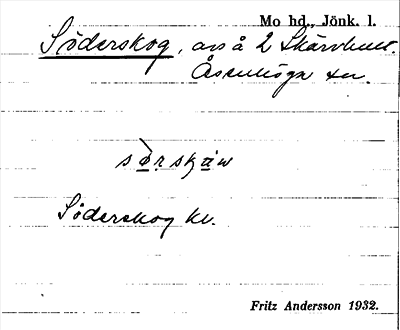 Mo hd., Jönk. l.
Söderskog, avs å 2 Skärvhult.
Åsenhöga sn.
Söderskog kl.
Fritz Andersson 1932.